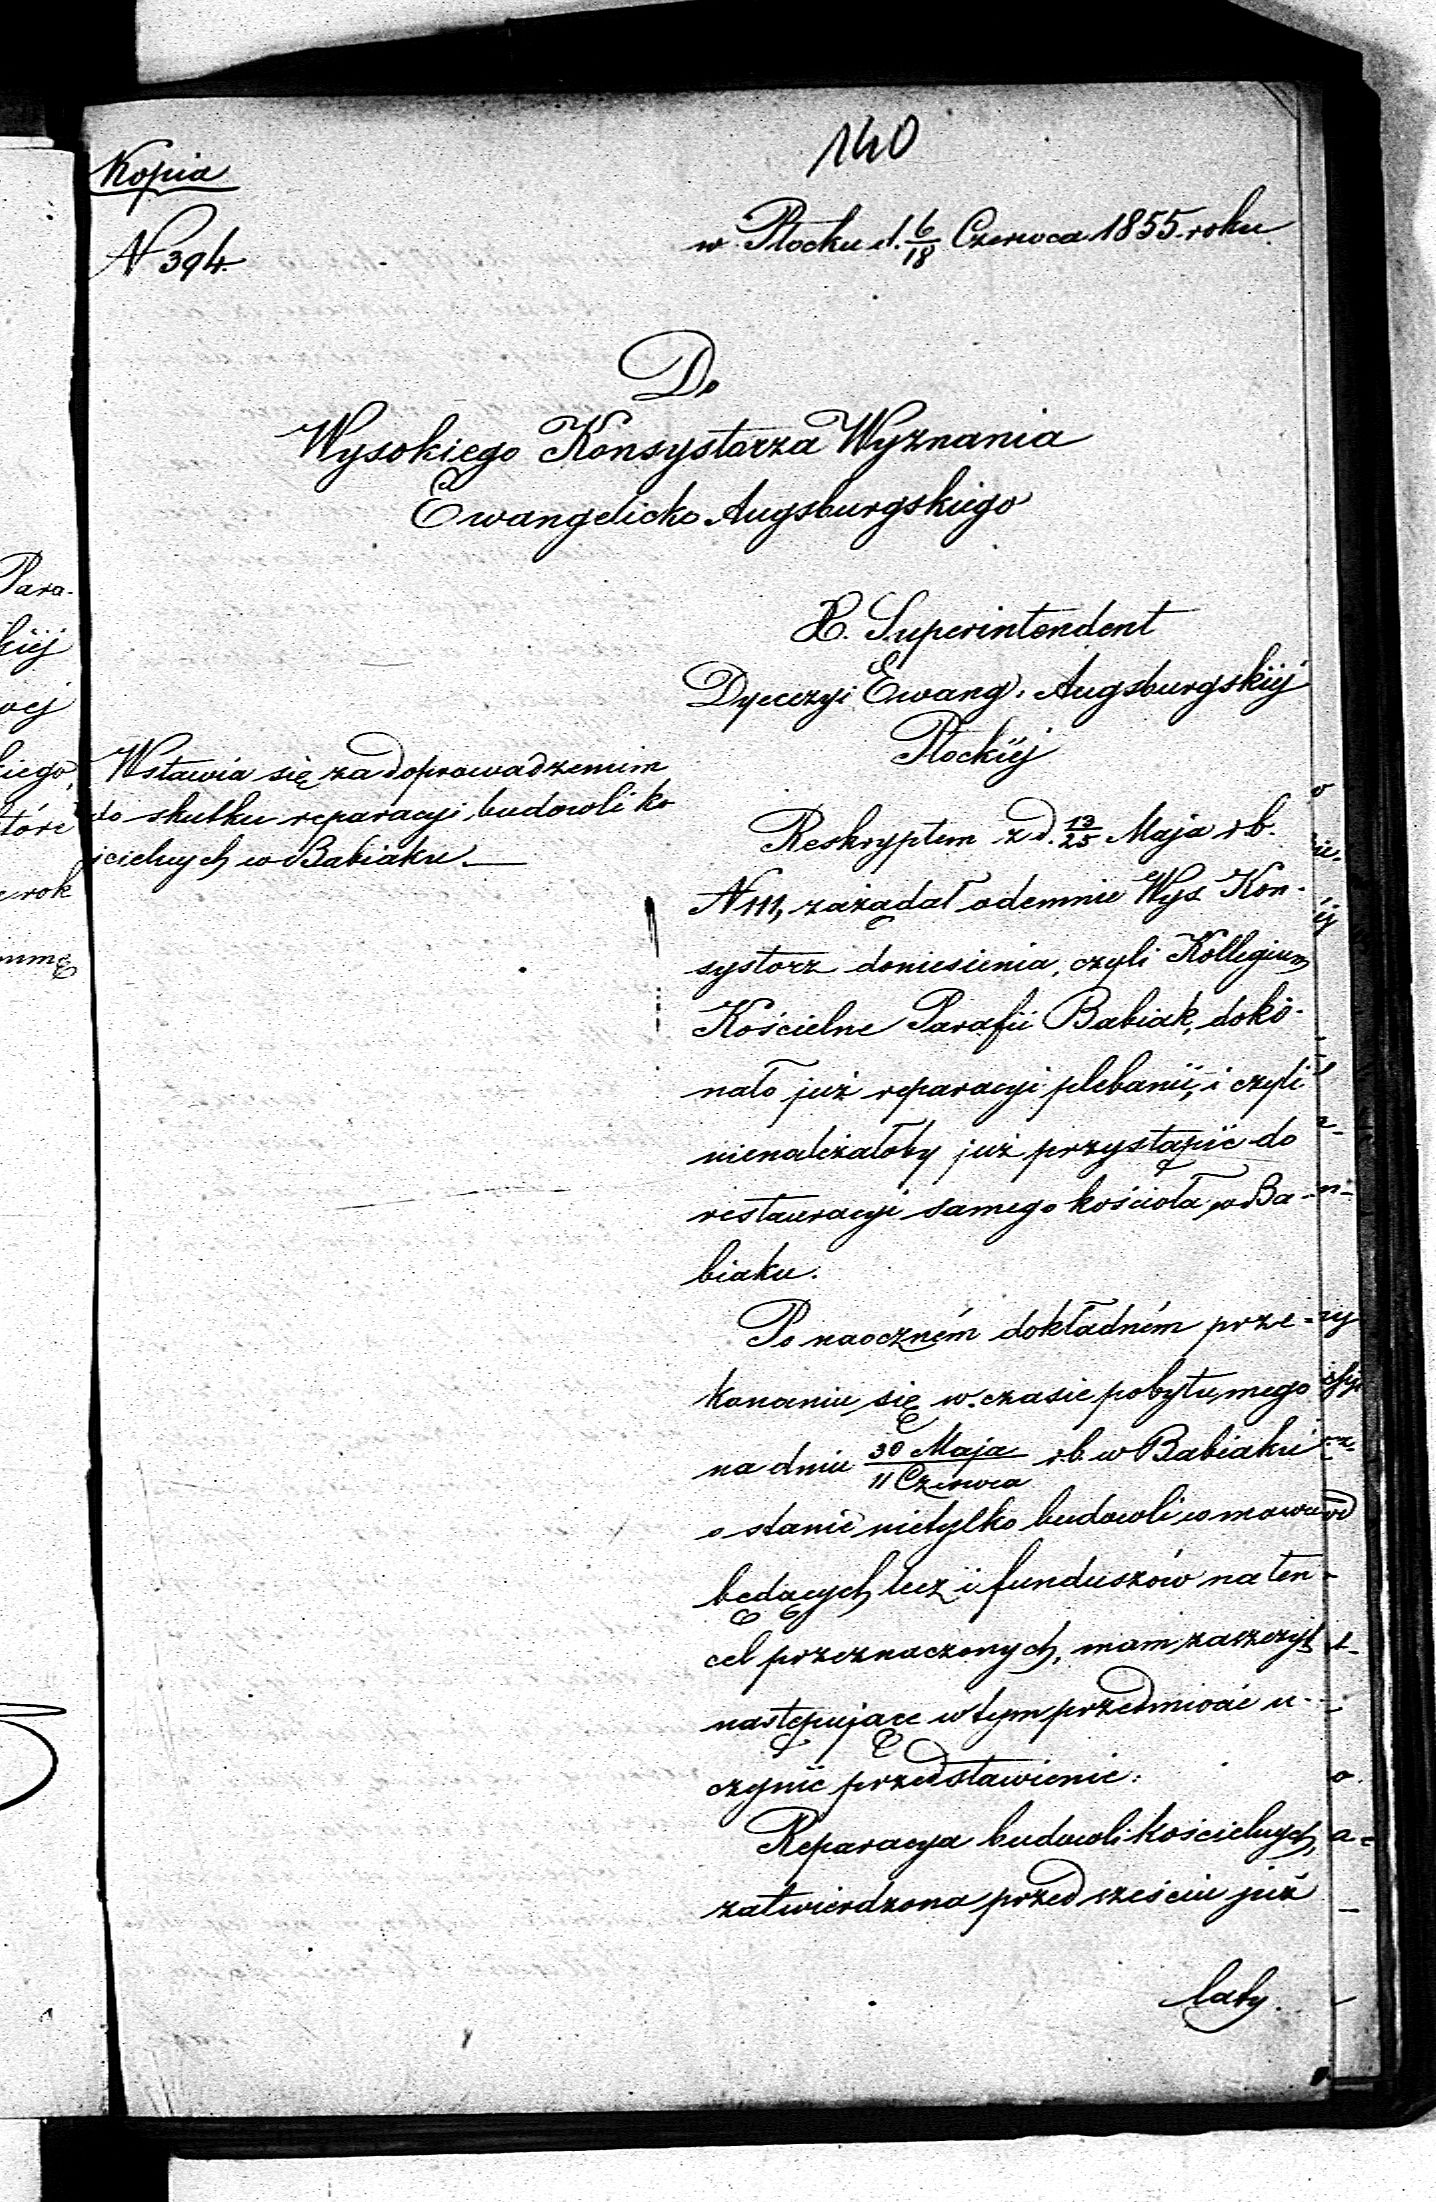 140
Kopia
N 394.
w Płocku d. 6/18 Czerwca 1855. roku.
Do
Wysokiego Konsystorza Wyznania
Ewangelicko Augsburgskiego
X. Superintendent
Dyecezyi Ewang. Augsburgskiéj
Płockiéj
Wstawia się za doprowadzeniem
do skutku reparacyi budowli ko
ścielnych w Babiaku.—
Reskryptem z d. 13/25 Maja r.b.
N 111, zażądał odemnie Wys Kon-
systorz doniesienia, czyli Kollegium
Kościelne Parafii Babiak, doko-
nało już reparacyi plebanii, i czyli
nienależałoby już przystąpić do
restauracyi samego kościoła w Ba-
biaku.
Po naoczném dokładném prze-
konaniu się w czasie pobytu mego
na dniu 30 Maja/11 Czerwca r.b. w Babiaku
o stanie nietylko budowli w mowie
będących lecz i funduszów na ten
cel przeznaczonych, mam zaszczyt
następujące w tym przedmiocie u-
czynić przedstawienie:
Reparacya budowli kościelnych,
zatwierdzona przed sześciu już
laty.
Para-
kiéj
kiego,
które
rok